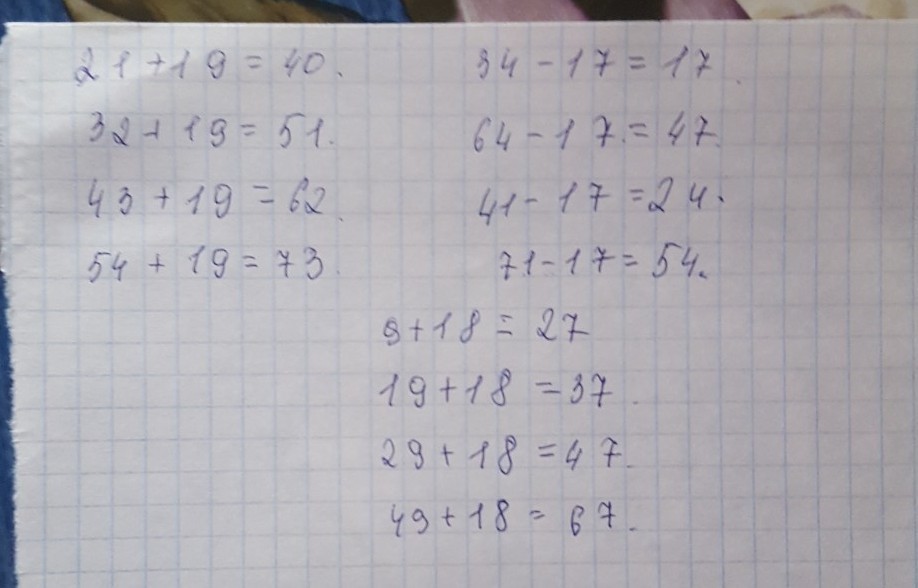 21+19=40.
32+19=51.
43+19=62.
54+19=73.
34-17=17.
64-17=47.
41-17=24.
71-17=54.
9+18=27
19+18=37.
29+18=47.
49+18=67.